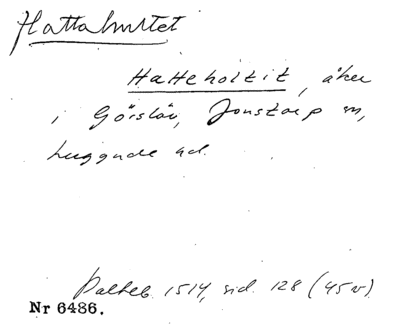 Hattahultet
Hatteholtit, åker
i Görslöv, Jonstorp sn,
Luggude hd.
Palteb. 1514, sid. 128 (45 v).
Nr 6486.